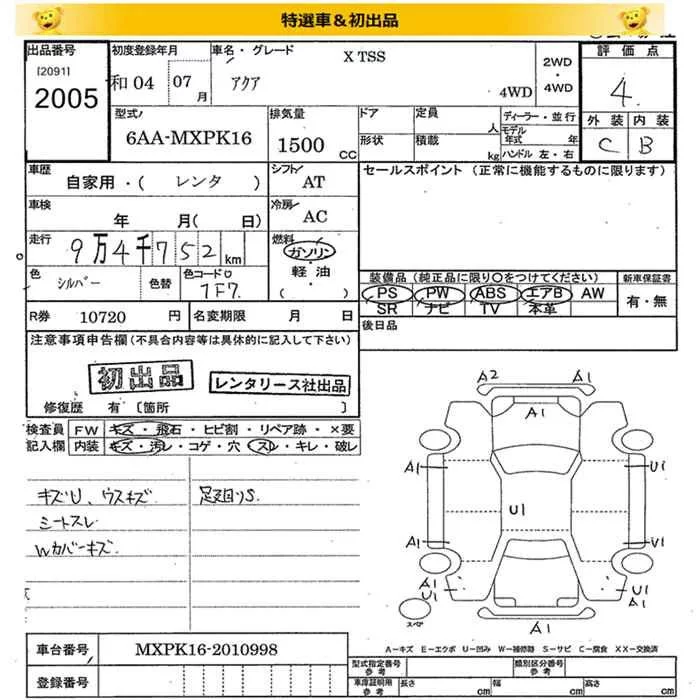 特選車＆初出品
出品番号
[2091]
2005
初度登録年月
和04 07月
車名・グレード
X TSS
アクア
4WD
2WD
・
4WD
評価点
4
外装 内装
C B
型式
6AA-MXPK16
排気量
1500 CC
ドア
定員 人
形状
積載 kg
ディーラー・並行
モデル年式 年
ハンドル 左・右
車歴
自家用・( レンタ )
シフト
AT
車検
年 月( 日)
冷房
AC
走行
9万4千752km
燃料
ガソリン
・
軽油
・
( )
色
シルバー
色替
色コード
1F7
R券 10720 円
名変期限 月 日
セールスポイント (正常に機能するものに限ります)
装備品 (純正品に限り○をつけてください)
PS PW ABS エアB AW
SR ナビ TV 本革
新車保証書
有・無
後日品
注意事項申告欄(不具合内容等は具体的に記入して下さい)
初出品
レンタリース社出品
修復歴 有 [箇所 ]
検査員記入欄
FW キズ・飛石・ヒビ割・リペア跡・×要
内装 キズ・汚レ・コゲ・穴・スレ・キレ・破レ
キズU、ウスキズ
足廻りS.
シートスレ
Wカバーキズ
A2 A1
A1
A1 U1
U1
A1 U1
A1 U1
A1 A1
スペア
A1
A－キズ E－エクボ U－凹み W－補修跡 S－サビ C－腐食 XX－交換済
車台番号 MXPK16-2010998
登録番号
型式指定番号 参考
類別区分番号 参考
車庫証明用 参考
長さ cm
幅 cm
高さ cm